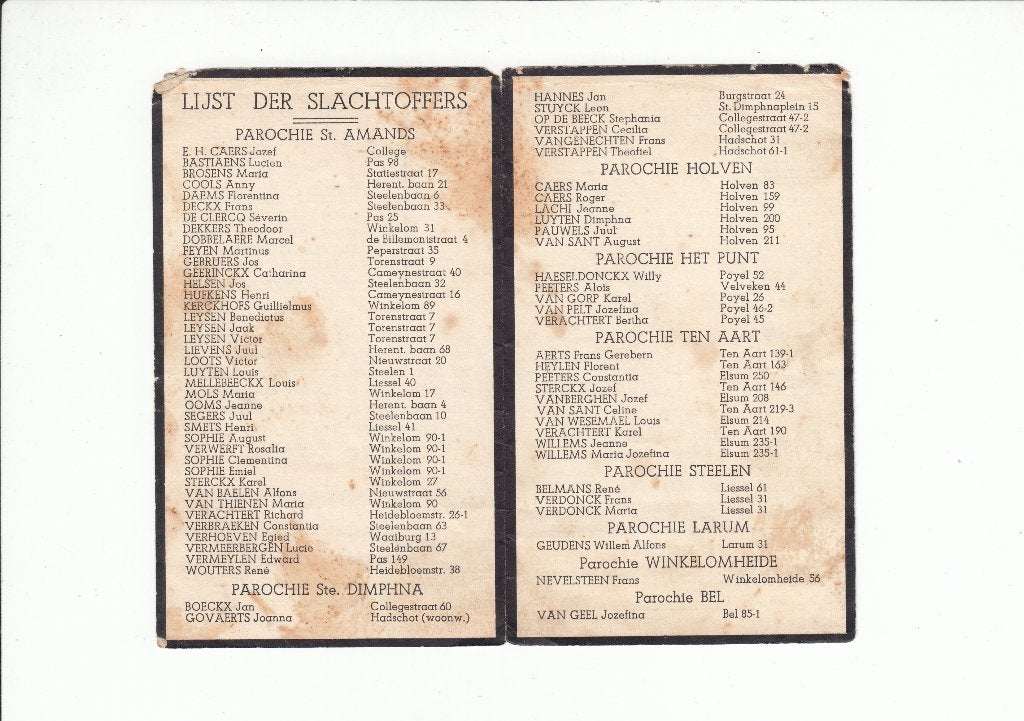 LIJST DER SLACHTOFFERS
PAROCHIE St. AMANDS
E. H. CAERS Jozef College
BASTIAENS Lucien Pas 98
BROSENS Maria Statiestraat 17
COOLS Anny Herent. baan 21
DAEMS Florentina Steelenbaan 6
DECKX Frans Steelenbaan 33
DE CLERCQ Séverin Pas 25
DEKKERS Theodoor Winkelom 31
DOBBELAERE Marcel de Billemontstraat 4
FEYEN Martinus Peperstraat 35
GEBRUERS Jos Torenstraat 9
GEERINCKX Catharina Cameynestraat 40
HELSEN Jos Steelenbaan 32
HUFKENS Henri Cameynestraat 16
KERCKHOFS Guillielmus Winkelom 89
LEYSEN Benedictus Torenstraat 7
LEYSEN Jaak Torenstraat 7
LEYSEN Victor Torenstraat 7
LIEVENS Juul Herent. baan 68
LOOTS Victor Nieuwstraat 20
LUYTEN Louis Steelen 1
MELLEBEECKX Louis Liessel 40
MOLS Maria Winkelom 17
OOMS Jeanne Herent. baan 4
SEGERS Juul Steelenbaan 10
SMETS Henri Liessel 41
SOPHIE August Winkelom 90-1
VERWERFT Rosalia Winkelom 90-1
SOPHIE Clementina Winkelom 90-1
SOPHIE Emiel Winkelom 90-1
STERCKX Karel Winkelom 27
VAN BAELEN Alfons Nieuwstraat 56
VAN THIENEN Maria Winkelom 90
VERACHTERT Richard Heidebloemstr. 26-1
VERBRAEKEN Constantia Steelenbaan 63
VERHOEVEN Egied Waaiburg 13
VERMEERBERGEN Lucie Steelenbaan 67
VERMEYLEN Edward Pas 149
WOUTERS René Heidebloemstr. 38
PAROCHIE Ste. DIMPHNA
BOECKX Jan Collegestraat 60
GOVAERTS Joanna Hadschot (woonw.)
HANNES Jan Burgstraat 24
STUYCK Leon St. Dimphnaplein 15
OP DE BEECK Stephania Collegestraat 47-2
VERSTAPPEN Cecilia Collegestraat 47-2
VANGENECHTEN Frans Hadschot 31
VERSTAPPEN Theofiel Hadschot 61-1
PAROCHIE HOLVEN
CAERS Maria Holven 83
CAERS Roger Holven 159
LACHI Jeanne Holven 99
LUYTEN Dimphna Holven 200
PAUWELS Juul Holven 95
VAN SANT August Holven 211
PAROCHIE HET PUNT
HAESELDONCKX Willy Poyel 52
PEETERS Aloïs Velveken 44
VAN GORP Karel Poyel 26
VAN PELT Jozefina Poyel 46-2
VERACHTERT Bertha Poyel 45
PAROCHIE TEN AART
AERTS Frans Gerebern Ten Aart 139-1
HEYLEN Florent Ten Aart 163
PEETERS Constantia Elsum 250
STERCKX Jozef Ten Aart 146
VANBERGHEN Jozef Elsum 208
VAN SANT Celine Ten Aart 219-3
VAN WESEMAEL Louis Elsum 214
VERACHTERT Karel Ten Aart 190
WILLEMS Jeanne Elsum 235-1
WILLEMS Maria Jozefina Elsum 235-1
PAROCHIE STEELEN
BELMANS René Liessel 61
VERDONCK Frans Liessel 31
VERDONCK Maria Liessel 31
PAROCHIE LARUM
GEUDENS Willem Alfons Larum 31
Parochie WINKELOMHEIDE
NEVELSTEEN Frans Winkelomheide 56
Parochie BEL
VAN GEEL Jozefina Bel 85-1